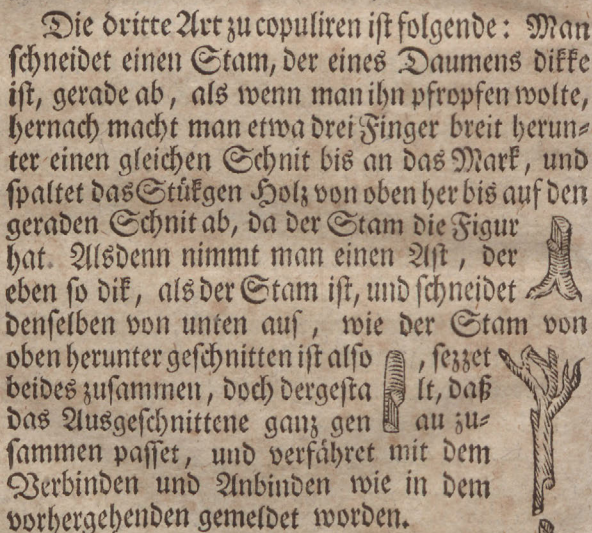 Die dritte Art zu copuliren ist folgende: Man
schneidet einen Stam, der eines Daumens dikke
ist, gerade ab, als wenn man ihn pfropfen wolte,
hernach macht man etwa drei Finger breit herun⸗
ter einen gleichen Schnit bis an das Mark, und
spaltet das Stükgen Holz von oben her bis auf den
geraden Schnit ab, da der Stam die Figur
hat. Alsdenn nimmt man einen Ast, der
eben so dik, als der Stam ist, und schneidet
denselben von unten aus, wie der Stam von
oben herunter geschnitten ist also , sezzet
beides zusammen, doch dergesta lt, daß
das Ausgeschnittene ganz gen au zu⸗
sammen passet, und verfähret mit dem
Verbinden und Anbinden wie in dem
vorhergehenden gemeldet worden.